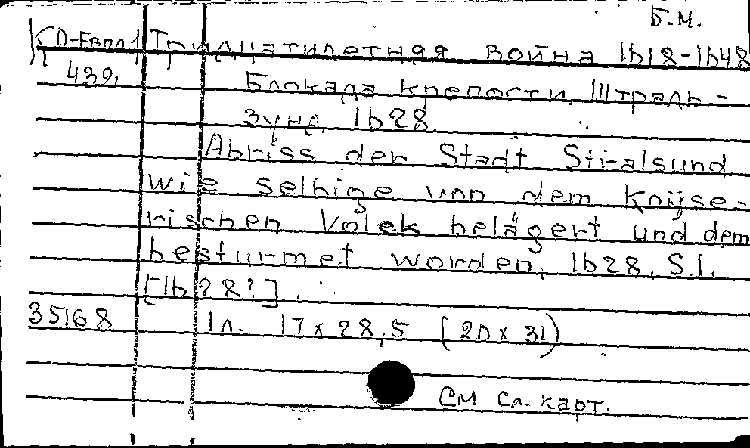 Б.М.
К О-Европ Тридцатилетняя война 1618-1648
439, Блокада крепости Штраль-
зунд 1628
Abriss der Stadt Stralsund
wie selbige von dem Kaijse-
rischen Volck belägert und dem
besturmet worden, 1628, S.l.
[1628?].
35168 1л. 17 x 28,5 (20 x 31)
См сл. карт.